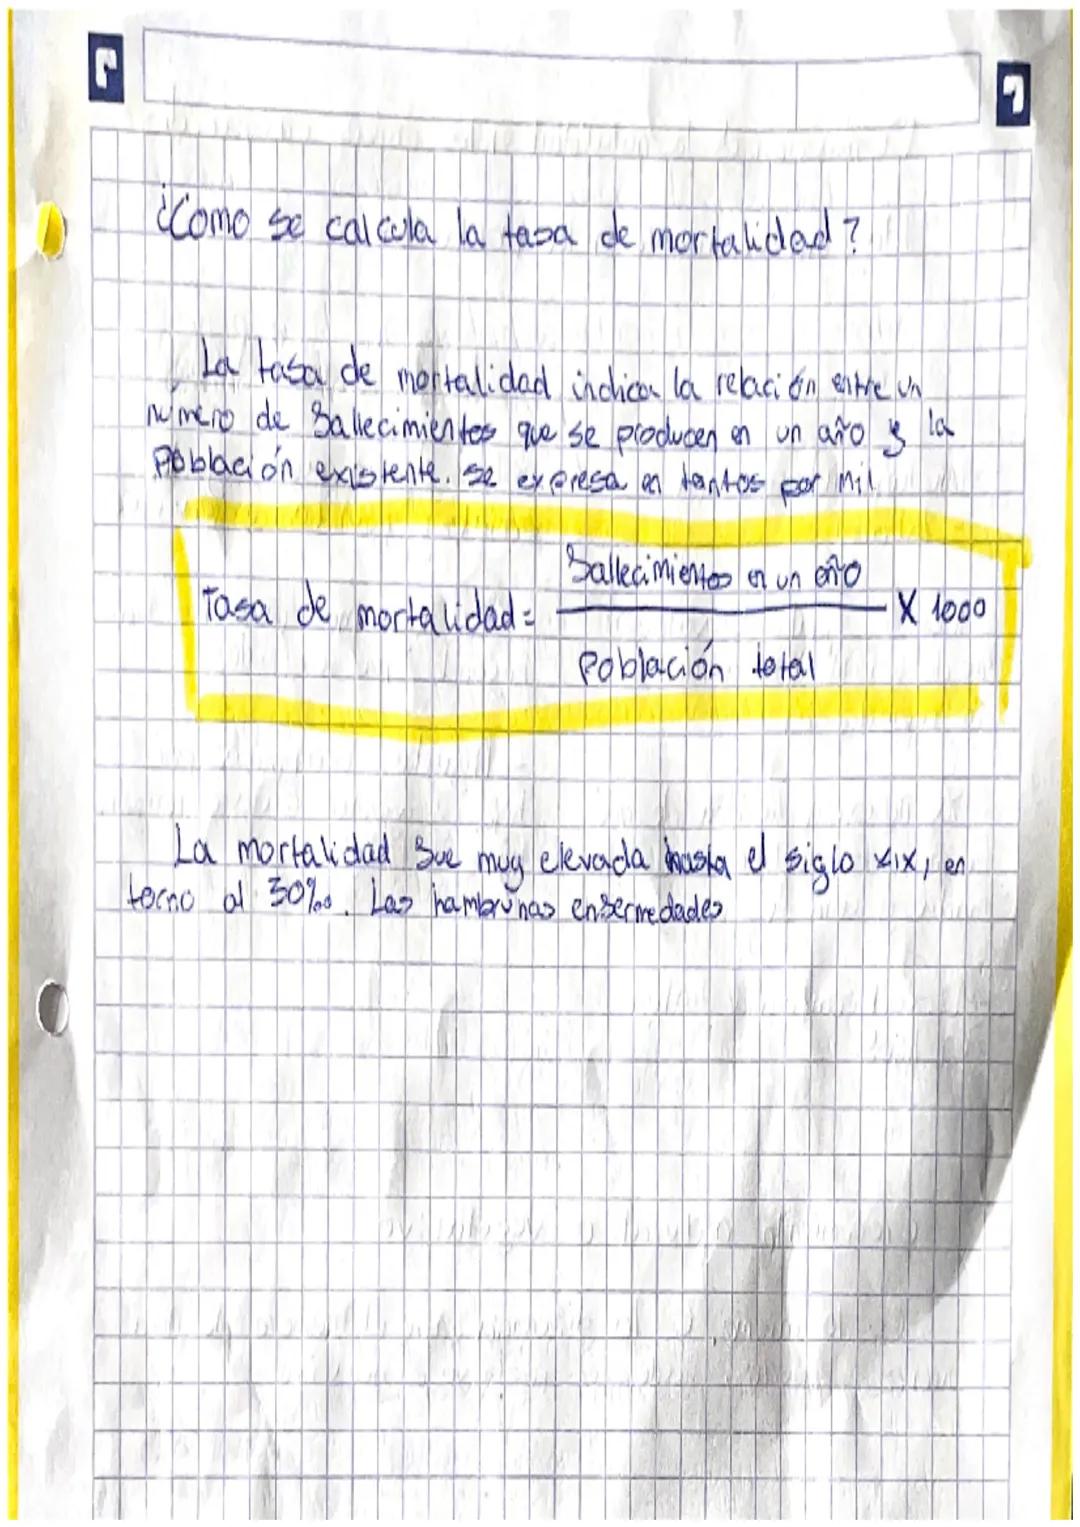 ¿Como se calcula la tasa de mortalidad?
La tasa de mortalidad indica la relación entre un
número de fallecimientos que se producen en un año y la
Población existente. se expresa en tantos por mil
Tasa de mortalidad = fallecimientos en un año / Población total X 1000
La mortalidad fue muy elevada hasta el siglo XIX, en
torno al 30‰. Las hambrunas enfermedades